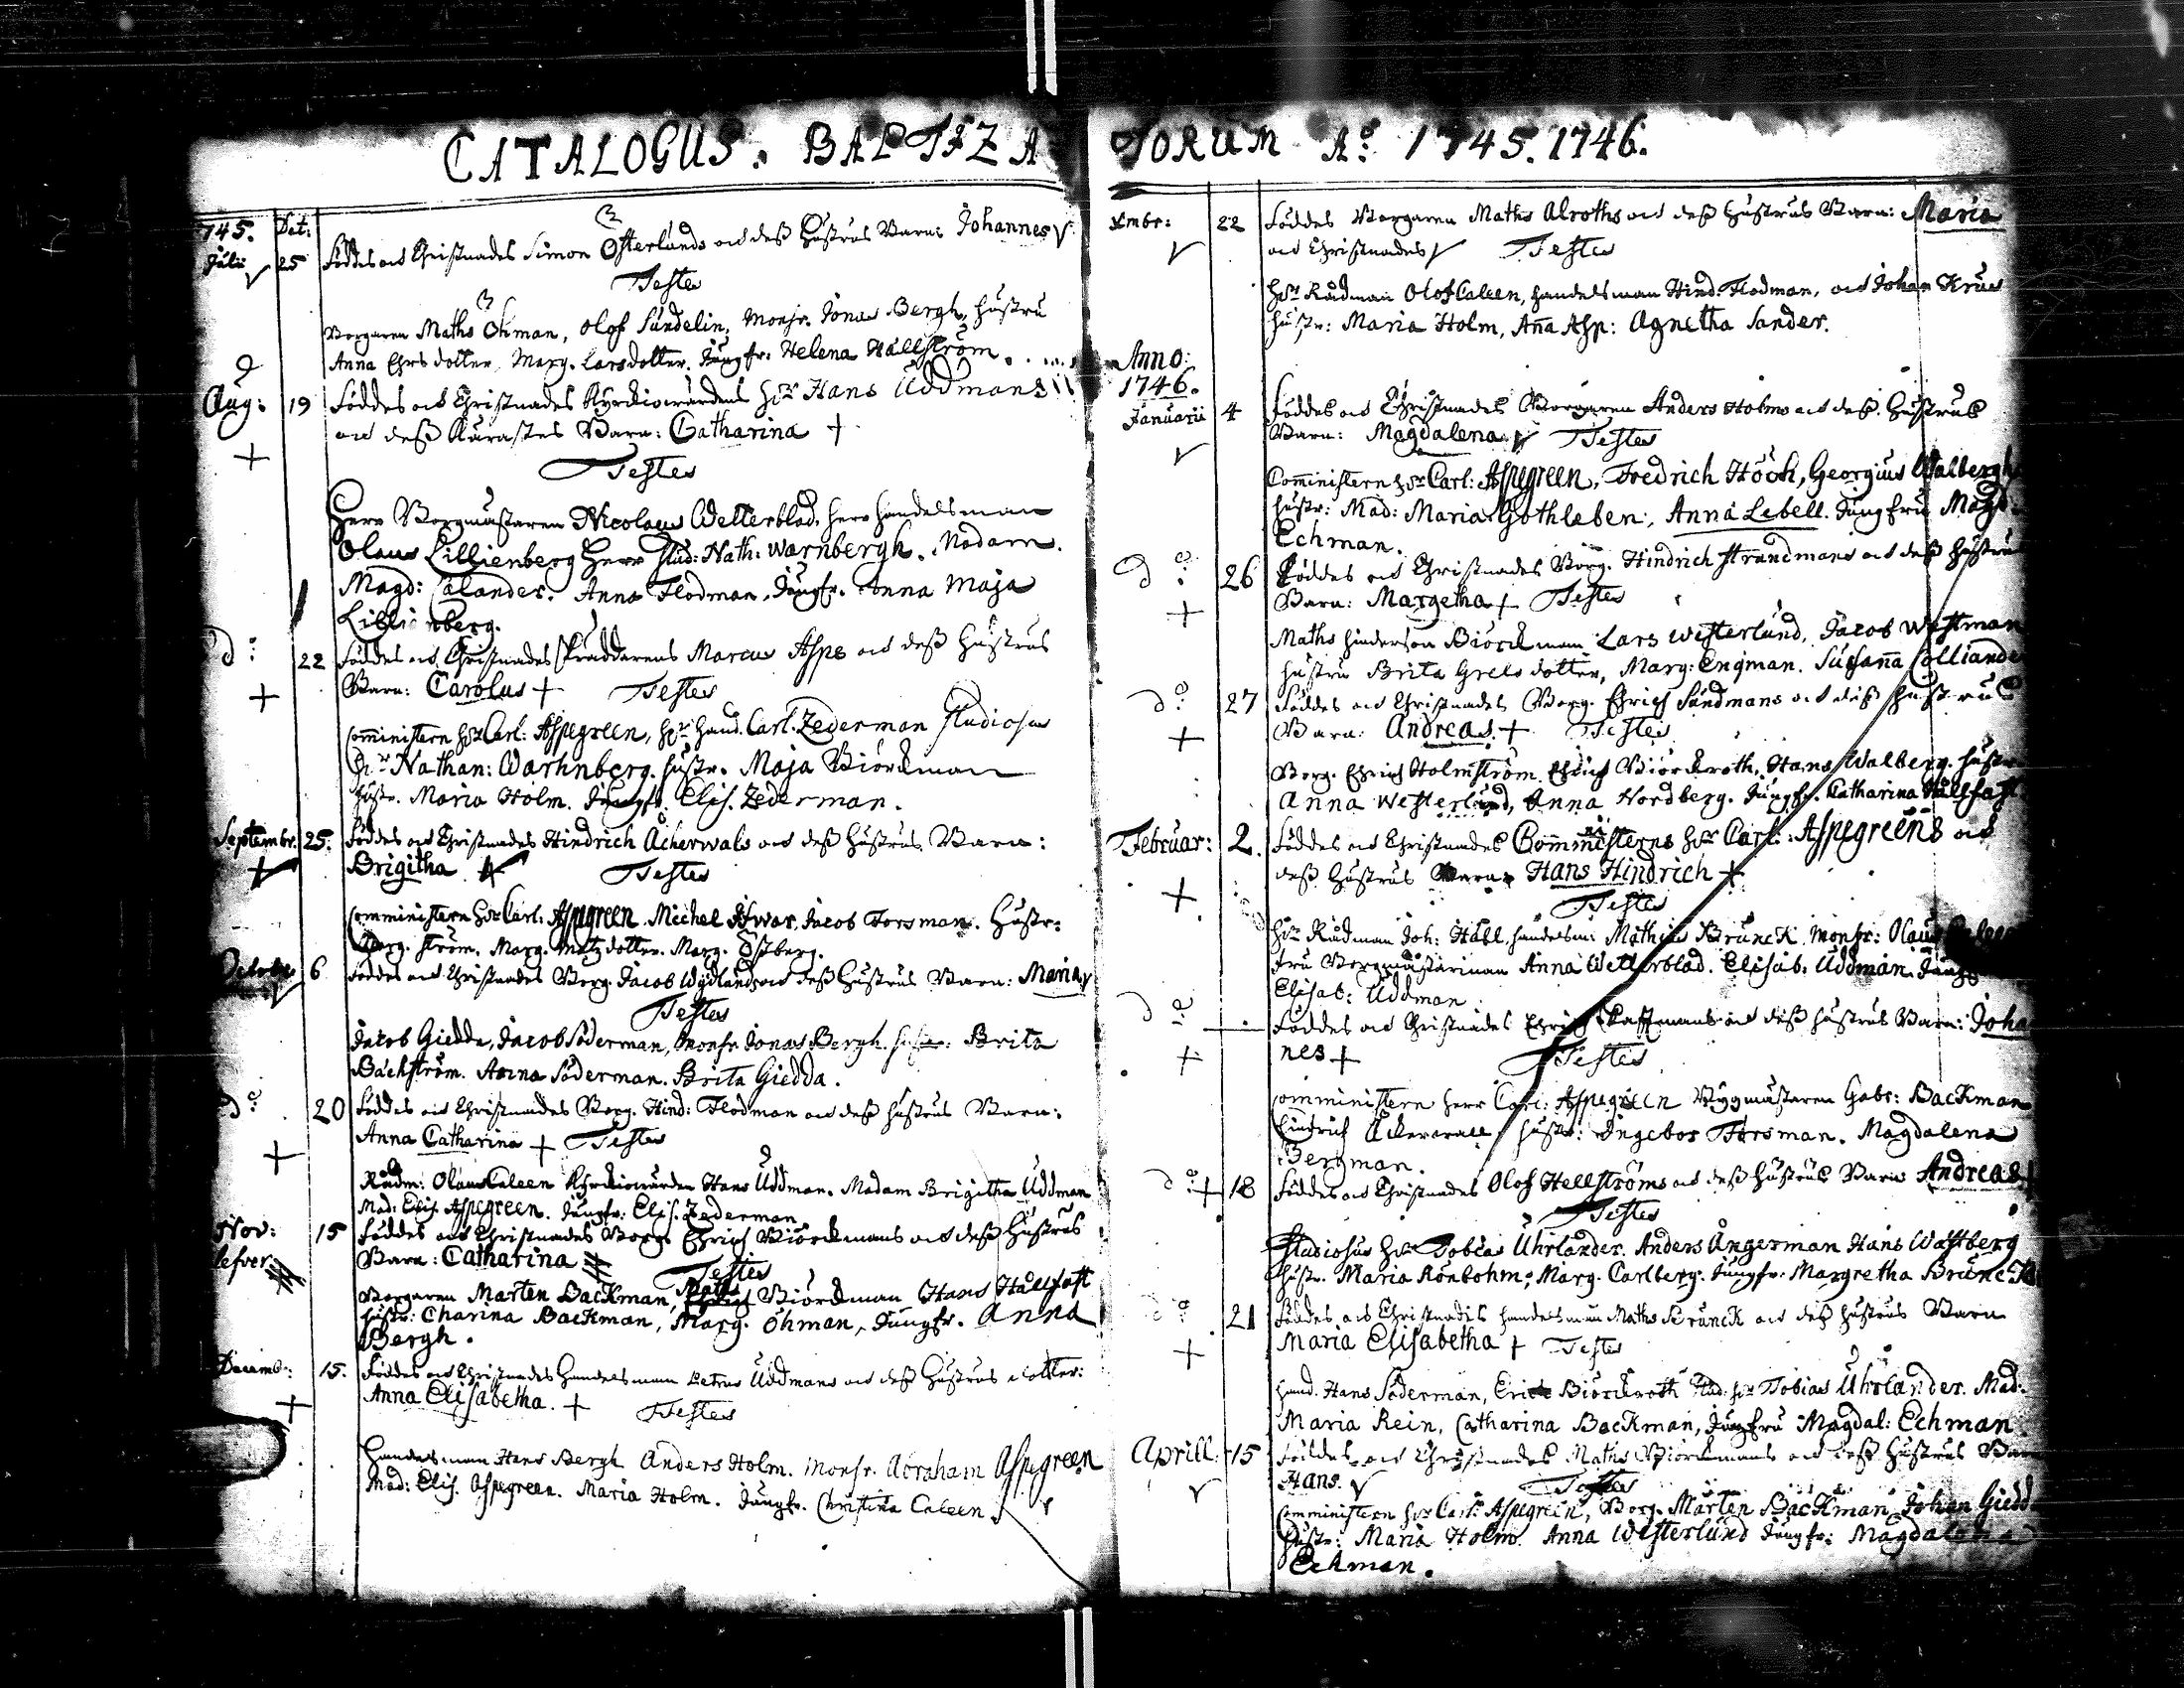 CATALOGUS. BAPTIZA
1745. Dat:
Julii 25 Föddes och Christnades Simon Österlunds och deß Hustrus Barn: Johannes
Testes
Borgaren Maths Öhman, Olof Sundelin, Monsr. Jonas Bergh, hustru
Anna Ehrsdotter, Marg. Larsdotter, Jungfr: Helena Hällström.
Aug: 19 Föddes och Christnades Kyrckiowärdens Hr Hans Uddmans
och deß Kärastes Barn: Catharina +
Testes
Herr Borgmästaren Nicolaus Wetterblad, herr handelsman
Olaus Lillienberg Herr Stud: Nath: Warnbergh. Madam.
Magd: Calander. Anna Flodman, Jungfr. Anna Maja
Lillienberg.
do: 22 Föddes och Christnades Skräddarens Marcus Asps och deß Hustrus
Barn: Carolus + Testes
Comministern Hr Carl: Aspegreen, Hr hand. Carl. Zederman Studiosus
Hr Nathan: Warhnberg. hustr. Maja Biörckman
hustr. Maria Holm. Jungfr. Elis. Zederman.
Septembr. 25. Föddes och Christnades Hindrich Åckerwals och deß hustrus Barn:
Brigitha Testes
Comministern Hr Carl: Aspegreen. Michel Ifwar, Jacob Forsman. Hustr:
Marg. ström. Marg. Matzdotter. Marg. Östberg.
October 6 Föddes och Christnades Borg. Jacob Wydlunds och deß Hustrus Barn: Maria
Testes
Jacob Giedda, Jacob Söderman, Monsr Jonas Bergh hustr: Brita
Bäckström. Anna Söderman. Brita Giedda.
do: 20 Föddes och Christnades Borg. Hind: Flodman och deß hustrus Barn:
Anna Catharina + Testes
Rådm: Olaus Caleen Kyrckiowärden Hans Uddman. Madam Brigitha Uddman
Mad: Elis Aspegreen. Jungfr: Elis. Zederman
Nov: 15 Föddes och Christnades Borg. Ehrich Biörckmans och deß Hustrus
Barn: Catharina Testes
Borgaren Mårten Backman, Maths Biörckman Hans Hällfast
hustr: Charina Backman, Marg. Öhman, Jungfr. Anna
Bergh.
Decemb: 15. Föddes och Christnades Handelsman Petrus Uddmans och deß Hustrus dotter:
Anna Elisabetha. + Testes
Handelsman Hans Bergh Anders Holm. Monsr. Abraham Aspegreen
Mad: Elis. Aspegreen. Maria Holm. Jungfr. Christina Caleen.
TORUM Ao: 1745. 1746.
Xmbr: 22 Föddes Borgaren Maths Alroths och deß hustrus Barn: Maria
och Christnades Testes
Hr Rådman Olof Caleen, handelsman Hind. Flodman, och Johan Kruus
hustr: Maria Holm, Anna Asp: Agnetha Sander.
Anno:
1746.
Januarii 4 Föddes och Christnades Borgaren Anders Holms och deß. Hustrus
Barn: Magdalena Testes
Comministern Hr Carl: Aspegreen, Fredrich Höök, Georgius Walbergh
hustr: Mad: Maria Gothleben:, Anna Lebell. Jungfru Magd:
Echman.
do: 26 Föddes och Christnades Borg. Hindrich Strandmans och deß hustrus
Barn: Margetha + Testes
Maths Hinderson Biörckman Lars Westerlund, Jacob Westman
hustru Brita Grelsdotter, Marg: Engman. Susanna Colliander
do: 27 Föddes och Christnades Borg. Ehrich Sundmans och deß hustrus
Barn: Andreas. + Testes
Borg. Ehrich Holmström Ehrich Biörckroth, Hans Walberg. hustr
Anna Westerlund, Anna Nordberg. Jungfr. Catharina Hällfast
Februar: 2. Föddes och Christnades Comministerns Hr Carl: Aspegreens och
deß hustrus Barn: Hans Hindrich +
Testes
Hr Rådman Joh: Häll, handelsm: Mathias Brunck, Monsr: Olaus
fru Borgmästarinnan Anna Wetterblad. Elisab: Uddman. Jungfr
Elisab: Uddman
do: Föddes och Christnades Ehrich Kaffmans och deß hustrus Barn: Joha
nes + Testes
Comministern herr Carl: Aspegreen Byggmästaren Gabr: Backman
Hindrich Åckerwall, hustr: Ingebor Forsman. Magdalena
Bergman.
do: + 18 Föddes och Christnades Olof Hellströms och deß hustrus Barn Andreas +
Testes
Studiosus Hr Tobias Uhrlander. Anders Ångerman Hans Wastberg
hustr. Maria Rönbohm; Marg. Carlberg. Jungfr. Margretha Brunck
do 21 Föddes och Christnades handelsman Maths Brunck och deß hustrus Barn
Maria Elisabetha + Testes
hand. Hans Söderman, Erick Biörckroth Stud: Hr Tobias Uhrlander. Mad:
Maria Rein, Catharina Backman, Jungfru Magdal: Echman
Aprill: 15 Föddes och Christnades Maths Biörckmans och deß hustrus Barn
Hans. Testes
Comministern Hr Carl: Aspegreen, Borg. Mårten Backman, Johan Giedd
hustr: Maria Holm. Anna Westerlund Jungfr: Magdalena
Echman.